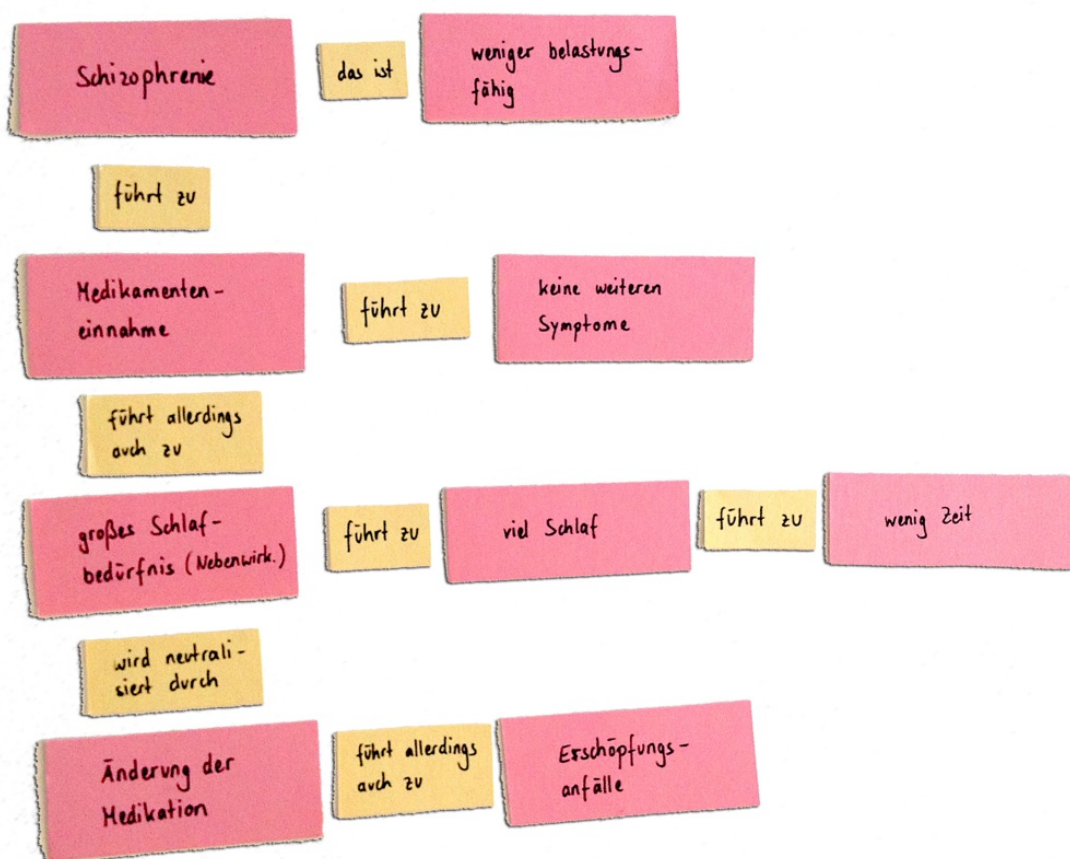 Schizophrenie
das ist
weniger belastungs-
fähig
führt zu
Medikamenten-
einnahme
führt zu
keine weiteren
Symptome
führt allerdings
auch zu
großes Schlaf-
bedürfnis (Nebenwirk.)
führt zu
viel Schlaf
führt zu
wenig Zeit
wird neutrali-
siert durch
Änderung der
Medikation
führt allerdings
auch zu
Erschöpfungs-
anfälle